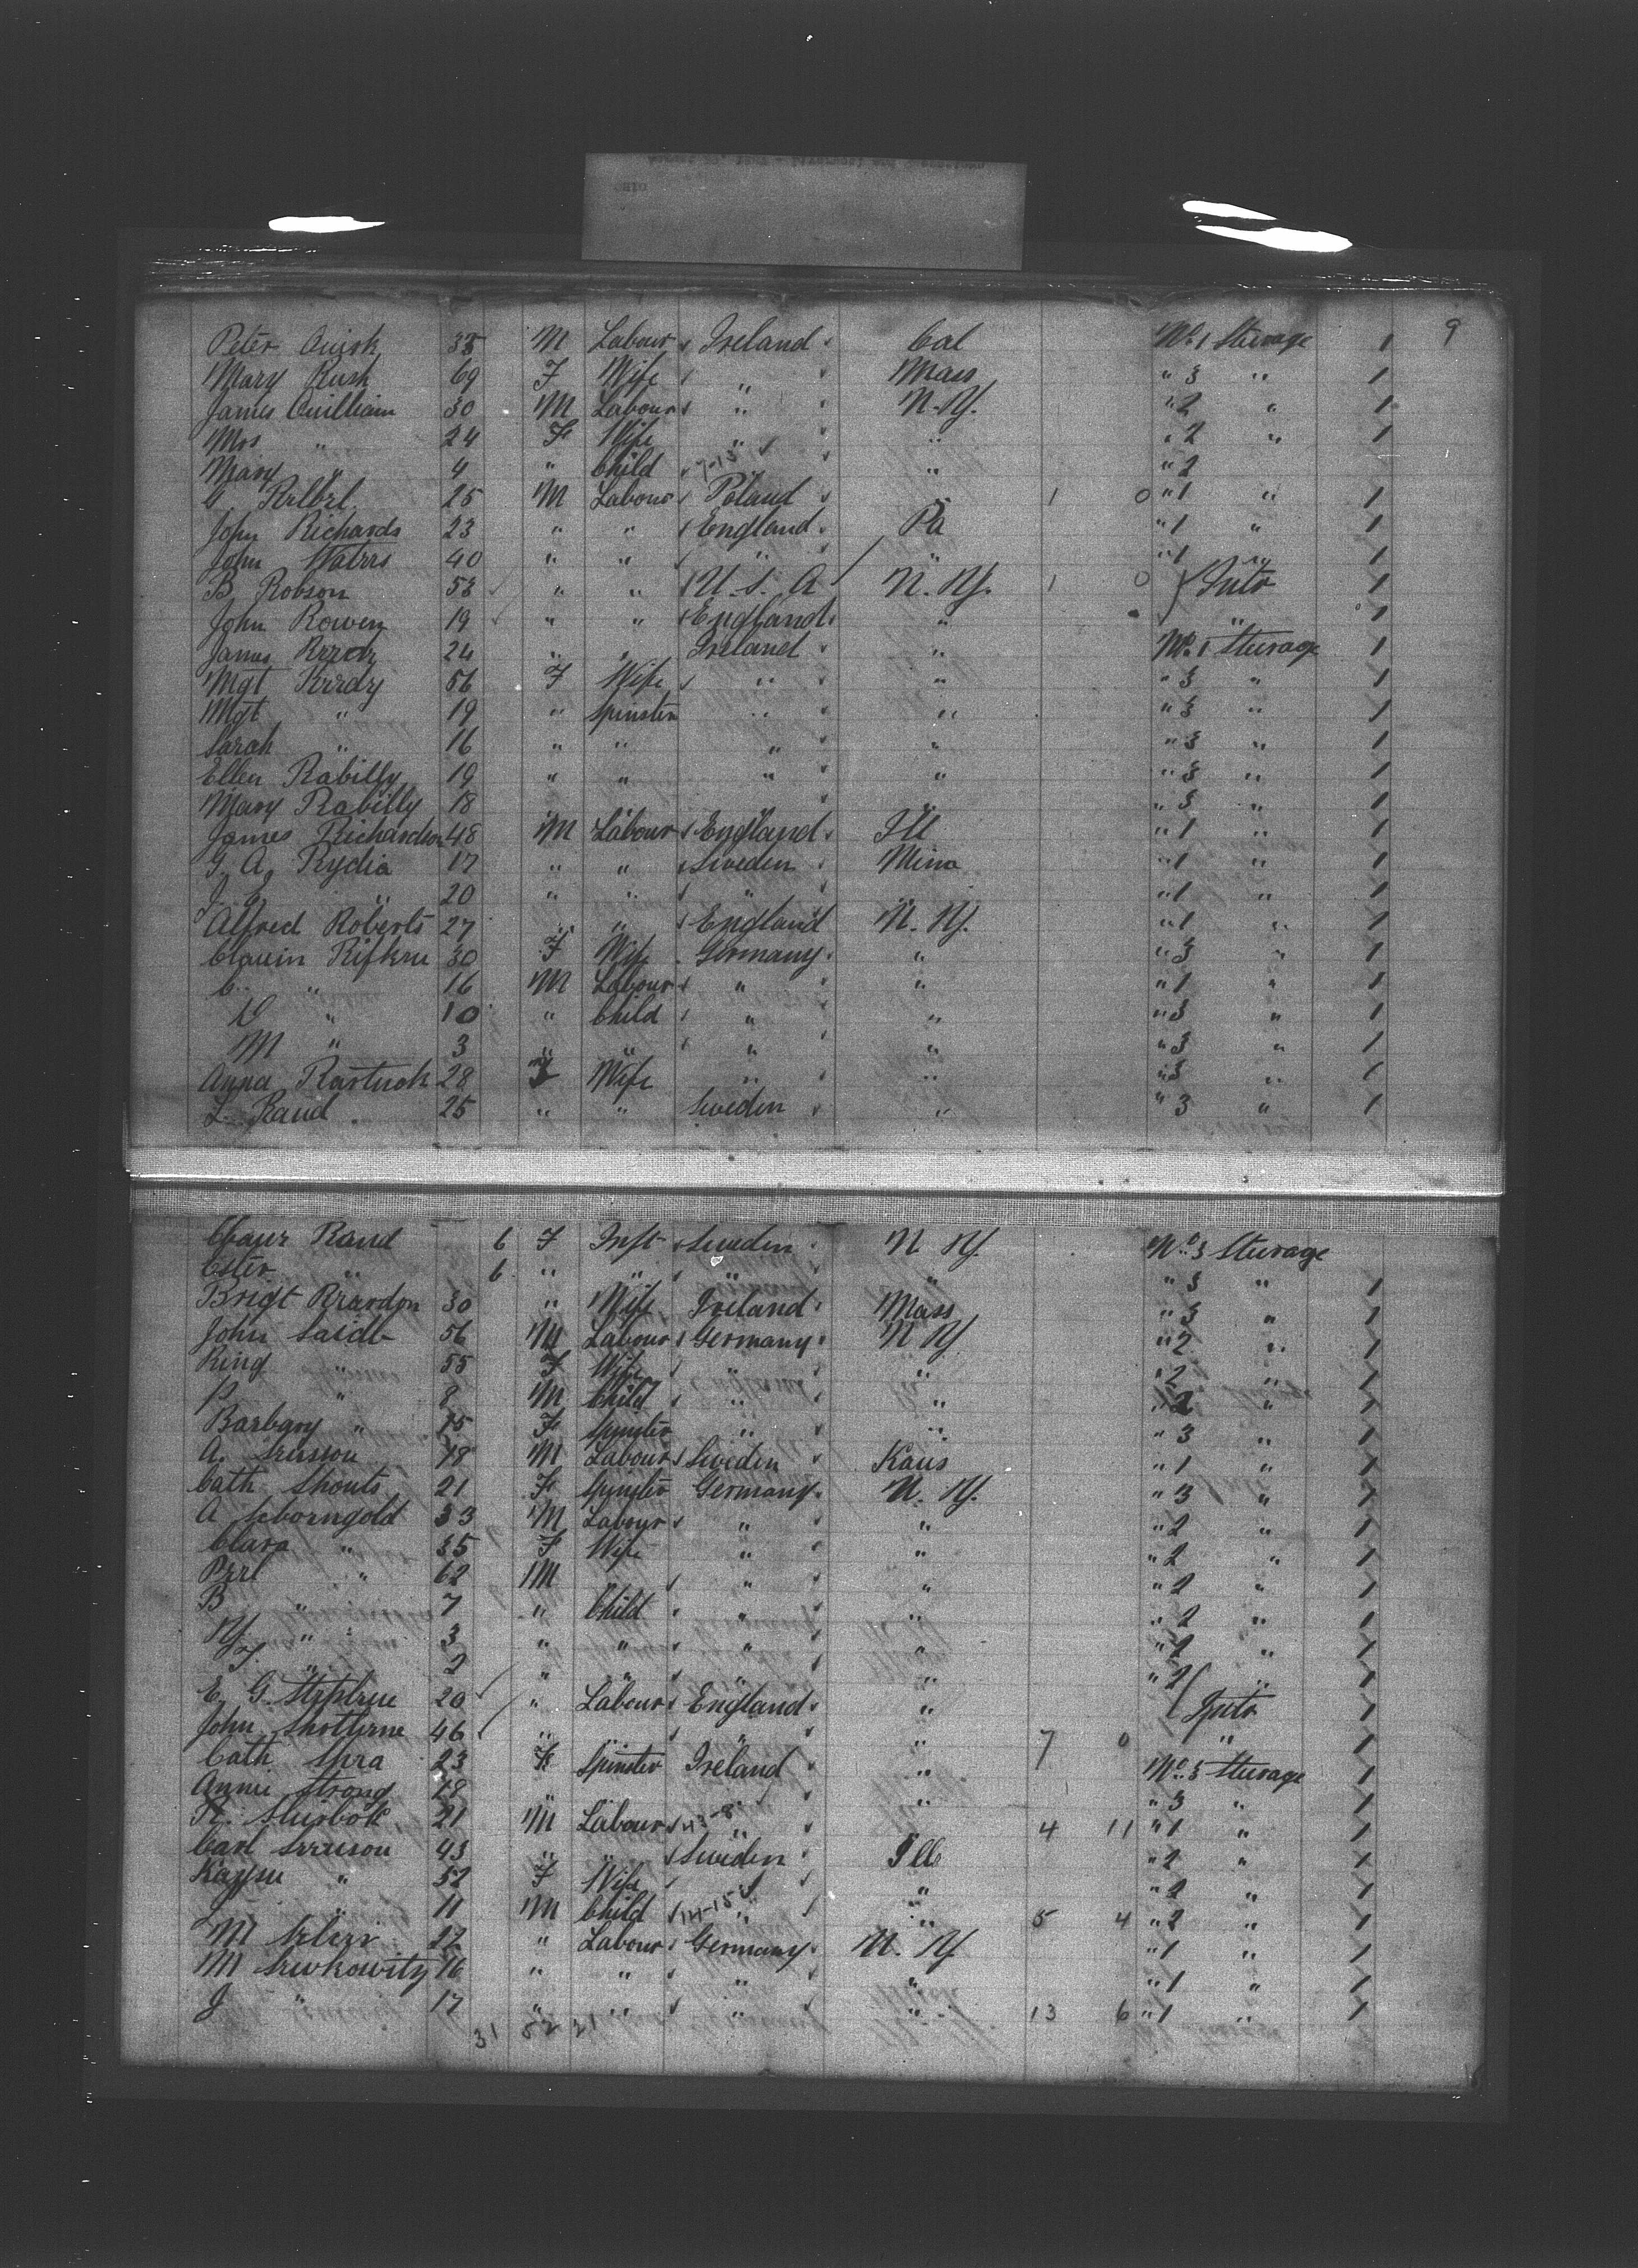 9
Peter Quirk 38 M Labour Ireland Cal No. 1 Sturage 1
Mary Rush 69 F Wife " Mass " 3 " 1
James Quilliam 30 M Labour " N. Y. " 2 " 1
Mrs " 24 F Wife " " " 2 " 1
Mary " 4 " Child 7-13 " " 2
G 25 M Labour Poland " 1 0 " 1 " 1
John Richards 23 " " England Pa " 1 " 1
John Watrrs 40 " " " " " 1 " 1
B Robson 53 " " U. S. A N. Y. 1 0 Intr 1
John Rowen 19 " " England " " 1
James 24 " " Ireland " No. 1 Sturage 1
Mgt Rrrdy 56 F Wife " " " 3 " 1
Mgt " 19 " Spinster " " " 3 " 1
Sarah " 16 " " " " " 3 " 1
Ellen Rabilly 19 " " " " " 3 " 1
Mary Rabilly 18 " 3 " 1
James Richardson 48 M Labour England Ill " 1 " 1
G. A. Rydia 17 " " Sweden Minn " 1 " 1
J. E. " 20 " " " " 1 " 1
Alfred Roberts 27 " " England N. Y. " 1 " 1
Clauin Rifkru 30 F Wife Germany " " 3 " 1
C. " 16 M Labour " " " 1 " 1
G " 10 " Child " " " 3 " 1
M " 3 " " " " " 3 " 1
Anna Rastuck 28 F Wife " " " 3 " 1
L. Rand 25 " " Sweden " " 3 " 1
Rand 6 F Inft Sweden N Y. No. 3 Sturage
Ester " 6 " " " " " 3 " 1
Brigt Rrardon 30 " Wife Ireland Mass " 3 " 1
John Saidl 56 M Labour Germany N Y " 2 " 1
Ring " 55 F Wife " " " 2 " 1
P " 8 M Child " " " 2 " 1
Barbary " 15 F Spinster " " " 3 " 1
A. 18 M Labour Sweden Kans " 1 " 1
Cath Shouts 21 F Spinster Germany N. Y. " 3 " 1
A Schorngold 33 M Labour " " " 2 " 1
Clara " 35 F Wife " " " 2 " 1
Prrl " 62 M " " " 2 " 1
B " 7 " Child " " " 2 " 1
Y. " 3 " " " " " 2 " 1
F. " 2 " " " " " 2 " 1
E. G. 20 " Labour England " Intr 1
John 46 " " " " 7 0 " 1
Cath Shra 23 F Spinster Ireland " No. 3 Sturage 1
Annie Strong 18 " " " " " 3 " 1
21 M Labour 43-8 " " 4 11 " 1 " 1
Carl Srruson 43 " " Sweden Ill " 2 " 1
" 52 F Wife " " " 2 " 1
J 11 M Child 14-15 " " 5 4 " 2 " 1
M 22 " Labour Germany N. Y " 1 " 1
M Srwkowitz 16 " " " " " 1 " 1
J " 17 " " " " 13 6 " 1 " 1
31 52 21